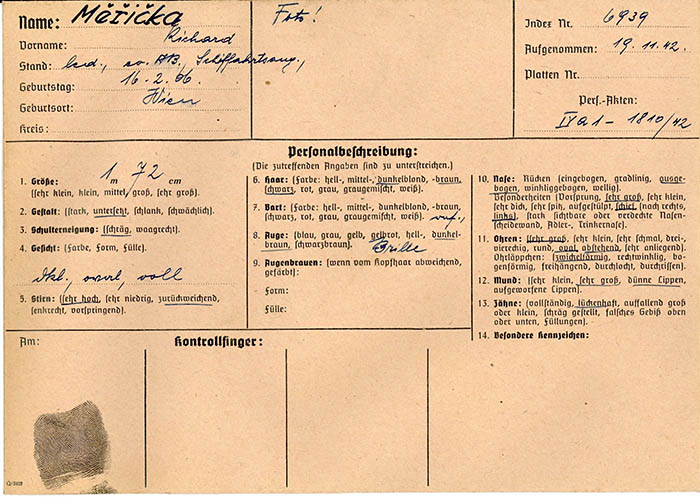 Name: Měřička
Vorname: Richard
Stand: led., Schiffahrtsang.,
Geburtstag: 16.2.06.
Geburtsort: Wien
Kreis:
Foto!
Index Nr. 6939
Aufgenommen: 19.11.42.
Platten Nr.
Pers.-Akten:
IV a 1 - 1810/42
Personalbeschreibung:
(Die zutreffenden Angaben sind zu unterstreichen.)
1. Größe: 1 m 72 cm
(sehr klein, klein, mittel, groß, sehr groß).
2. Gestalt: (stark, untersetzt, schlank, schwächlich).
3. Schulterneigung: (schräg, waagrecht).
4. Gesicht: (Farbe, Form, Fülle).
dkl., oval, voll
5. Stirn: (sehr hoch, sehr niedrig, zurückweichend,
senkrecht, vorspringend).
6. Haar: (Farbe: hell-, mittel-, dunkelblond, -braun,
schwarz, rot, grau, graugemischt, weiß).
7. Bart: (Farbe: hell-, mittel-, dunkelblond, -braun,
schwarz, rot, grau, graugemischt, weiß).
8. Auge: (blau, grau, gelb, gelbrot, hell-, dunkel-
braun, schwarzbraun). Brille
9. Augenbrauen: (wenn vom Kopfhaar abweichend,
gefärbt):
Form:
Fülle:
10. Nase: Rücken (eingebogen, gradlinig, ausge-
bogen, winkliggebogen, wellig).
Besonderheiten (Vorsprung, sehr groß, sehr klein,
sehr dick, sehr spitz, aufgestülpt, schief (nach rechts,
links), stark sichtbare oder verdeckte Nasen-
scheidewand, Adler-, Trinkernase).
11. Ohren: (sehr groß, sehr klein, sehr schmal, drei-,
viereckig, rund, oval, abstehend, sehr anliegend).
Ohrläppchen: (zwickelförmig, rechtwinklig, bo-
genförmig, freihängend, durchlocht, durchrissen).
12. Mund: (sehr klein, sehr groß, dünne Lippen,
aufgeworfene Lippen).
13. Zähne: (vollständig, lückenhaft, auffallend groß
oder klein, schräg gestellt, falsches Gebiß oben
oder unten, Füllungen).
14. Besondere Kennzeichen:
Am:
Kontrollfinger: